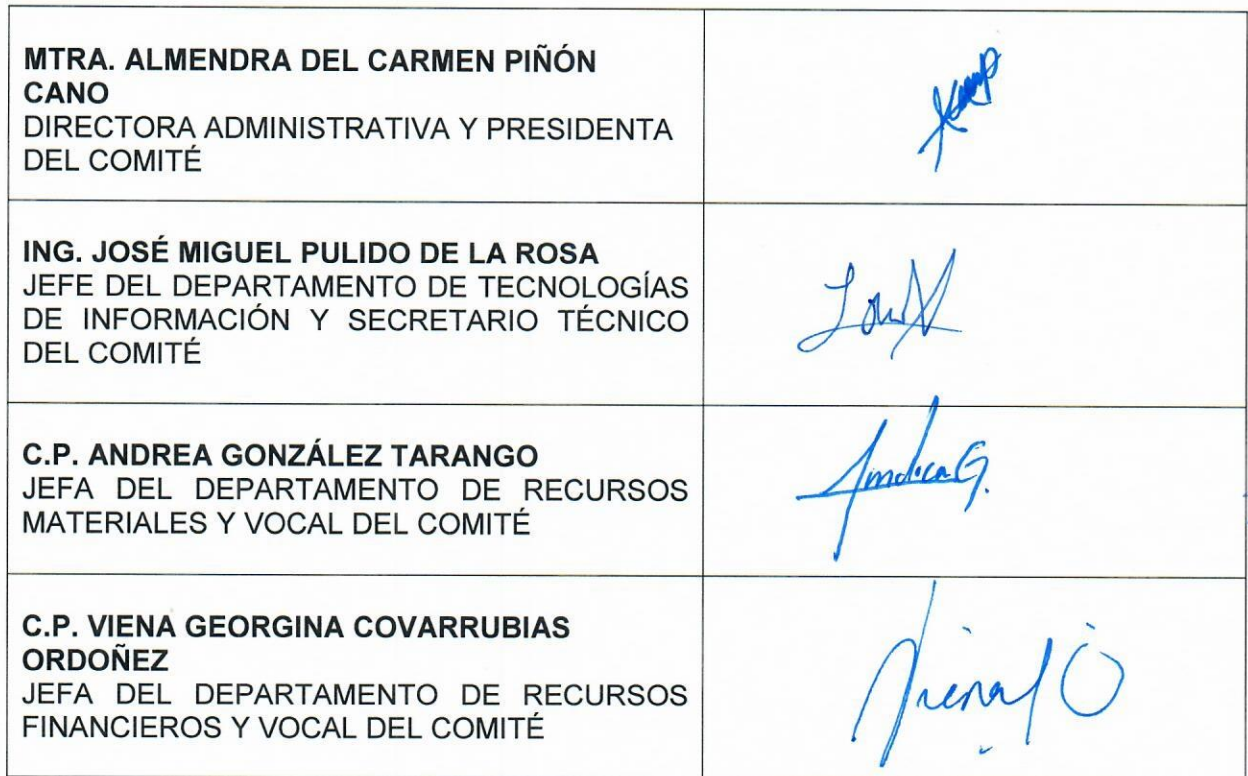 MTRA. ALMENDRA DEL CARMEN PIÑÓN
CANO
DIRECTORA ADMINISTRATIVA Y PRESIDENTA
DEL COMITÉ
ING. JOSÉ MIGUEL PULIDO DE LA ROSA
JEFE DEL DEPARTAMENTO DE TECNOLOGÍAS
DE INFORMACIÓN Y SECRETARIO TÉCNICO
DEL COMITÉ
C.P. ANDREA GONZÁLEZ TARANGO
JEFA DEL DEPARTAMENTO DE RECURSOS
MATERIALES Y VOCAL DEL COMITÉ
Andrea G.
C.P. VIENA GEORGINA COVARRUBIAS
ORDOÑEZ
JEFA DEL DEPARTAMENTO DE RECURSOS
FINANCIEROS Y VOCAL DEL COMITÉ